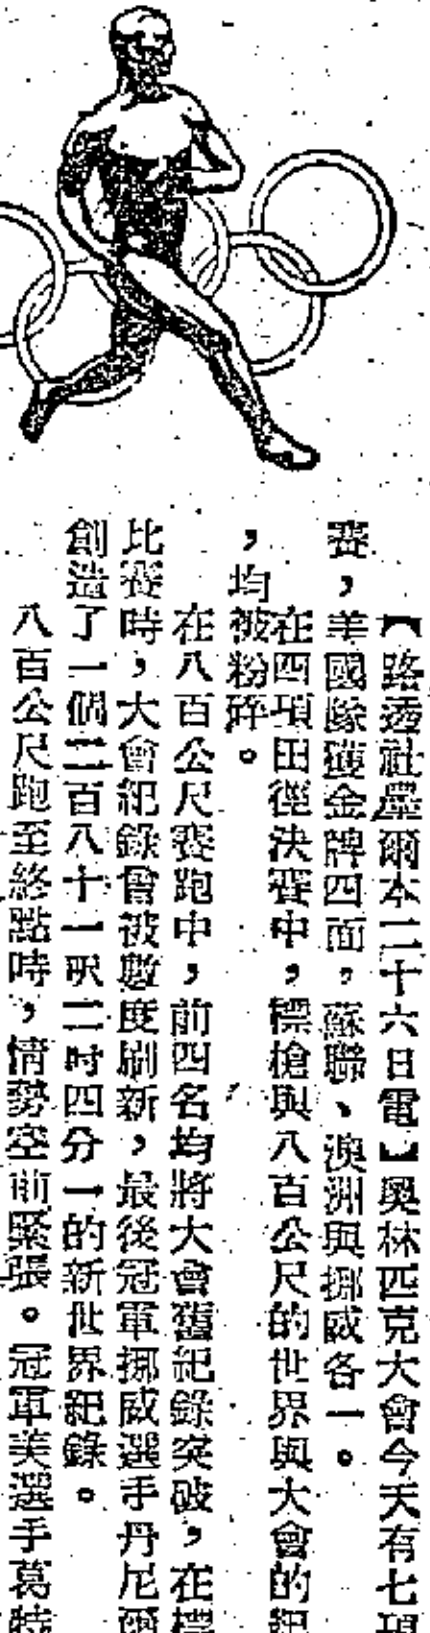 【路透社墨爾本二十六日電】奧林匹克大會今天有七項
賽，美國隊獲金牌四面，蘇聯、澳洲與挪威各一。
在四項田徑決賽中，標槍與八百公尺的世界與大會的紀
，均被粉碎。
在八百公尺賽跑中，前四名均將大會舊紀錄突破，在標
比賽時，大會紀錄曾被數度刷新，最後冠軍挪威選手丹尼爾
創造了一個二百八十一呎二吋四分一的新世界紀錄。
八百公尺跑至終點時，情勢空前緊張。冠軍美選手葛特